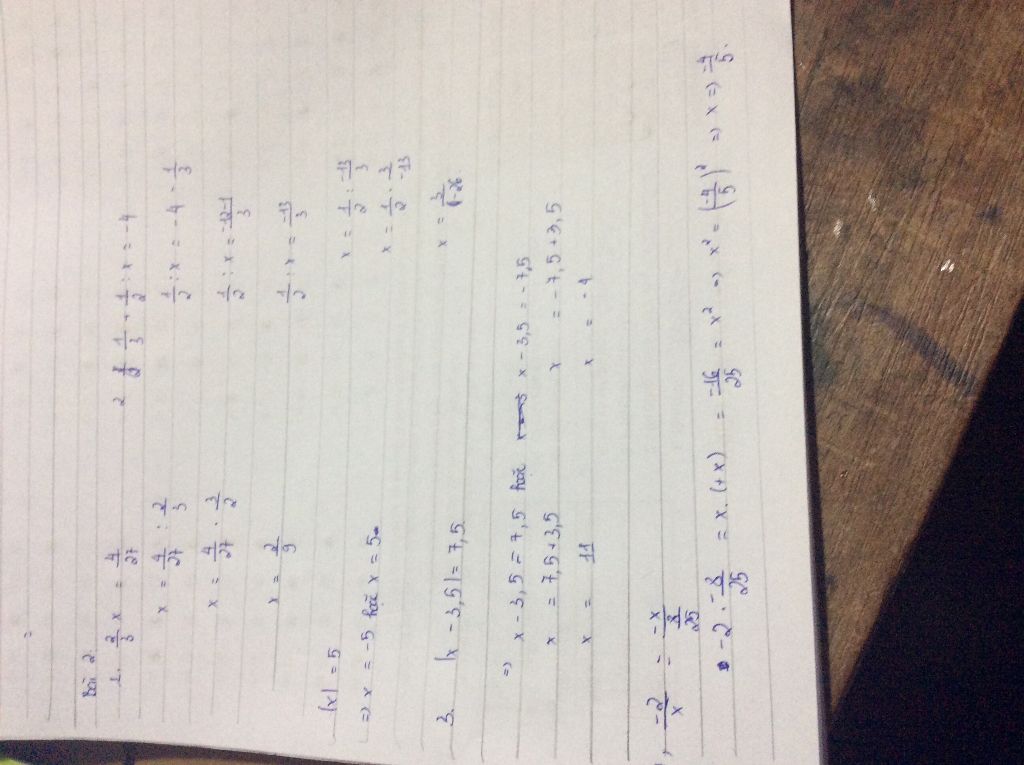 =
Bài 2.
1. 2/3 x = 4/27
x = 4/27 : 2/3
x = 4/27 . 3/2
x = 2/9
2 1/3 + 1/2 : x = -4
1/2 : x = -4 - 1/3
1/2 : x = -12-1/3
1/2 : x = -13/3
x = 1/2 : -13/3
x = 1/2 . 3/-13
x = 3/-26
|x| = 5
=> x = -5 hoặc x = 5
3. |x - 3,5| = 7,5
=> x - 3,5 = 7,5 hoặc x - 3,5 = -7,5
x = 7,5 + 3,5 x = -7,5 + 3,5
x = 11 x = -4
-2/x = -x/8/25
-2 . -8/25 = x . (+x) = -16/25 = x² => x² = (-4/5)² => x => -4/5.